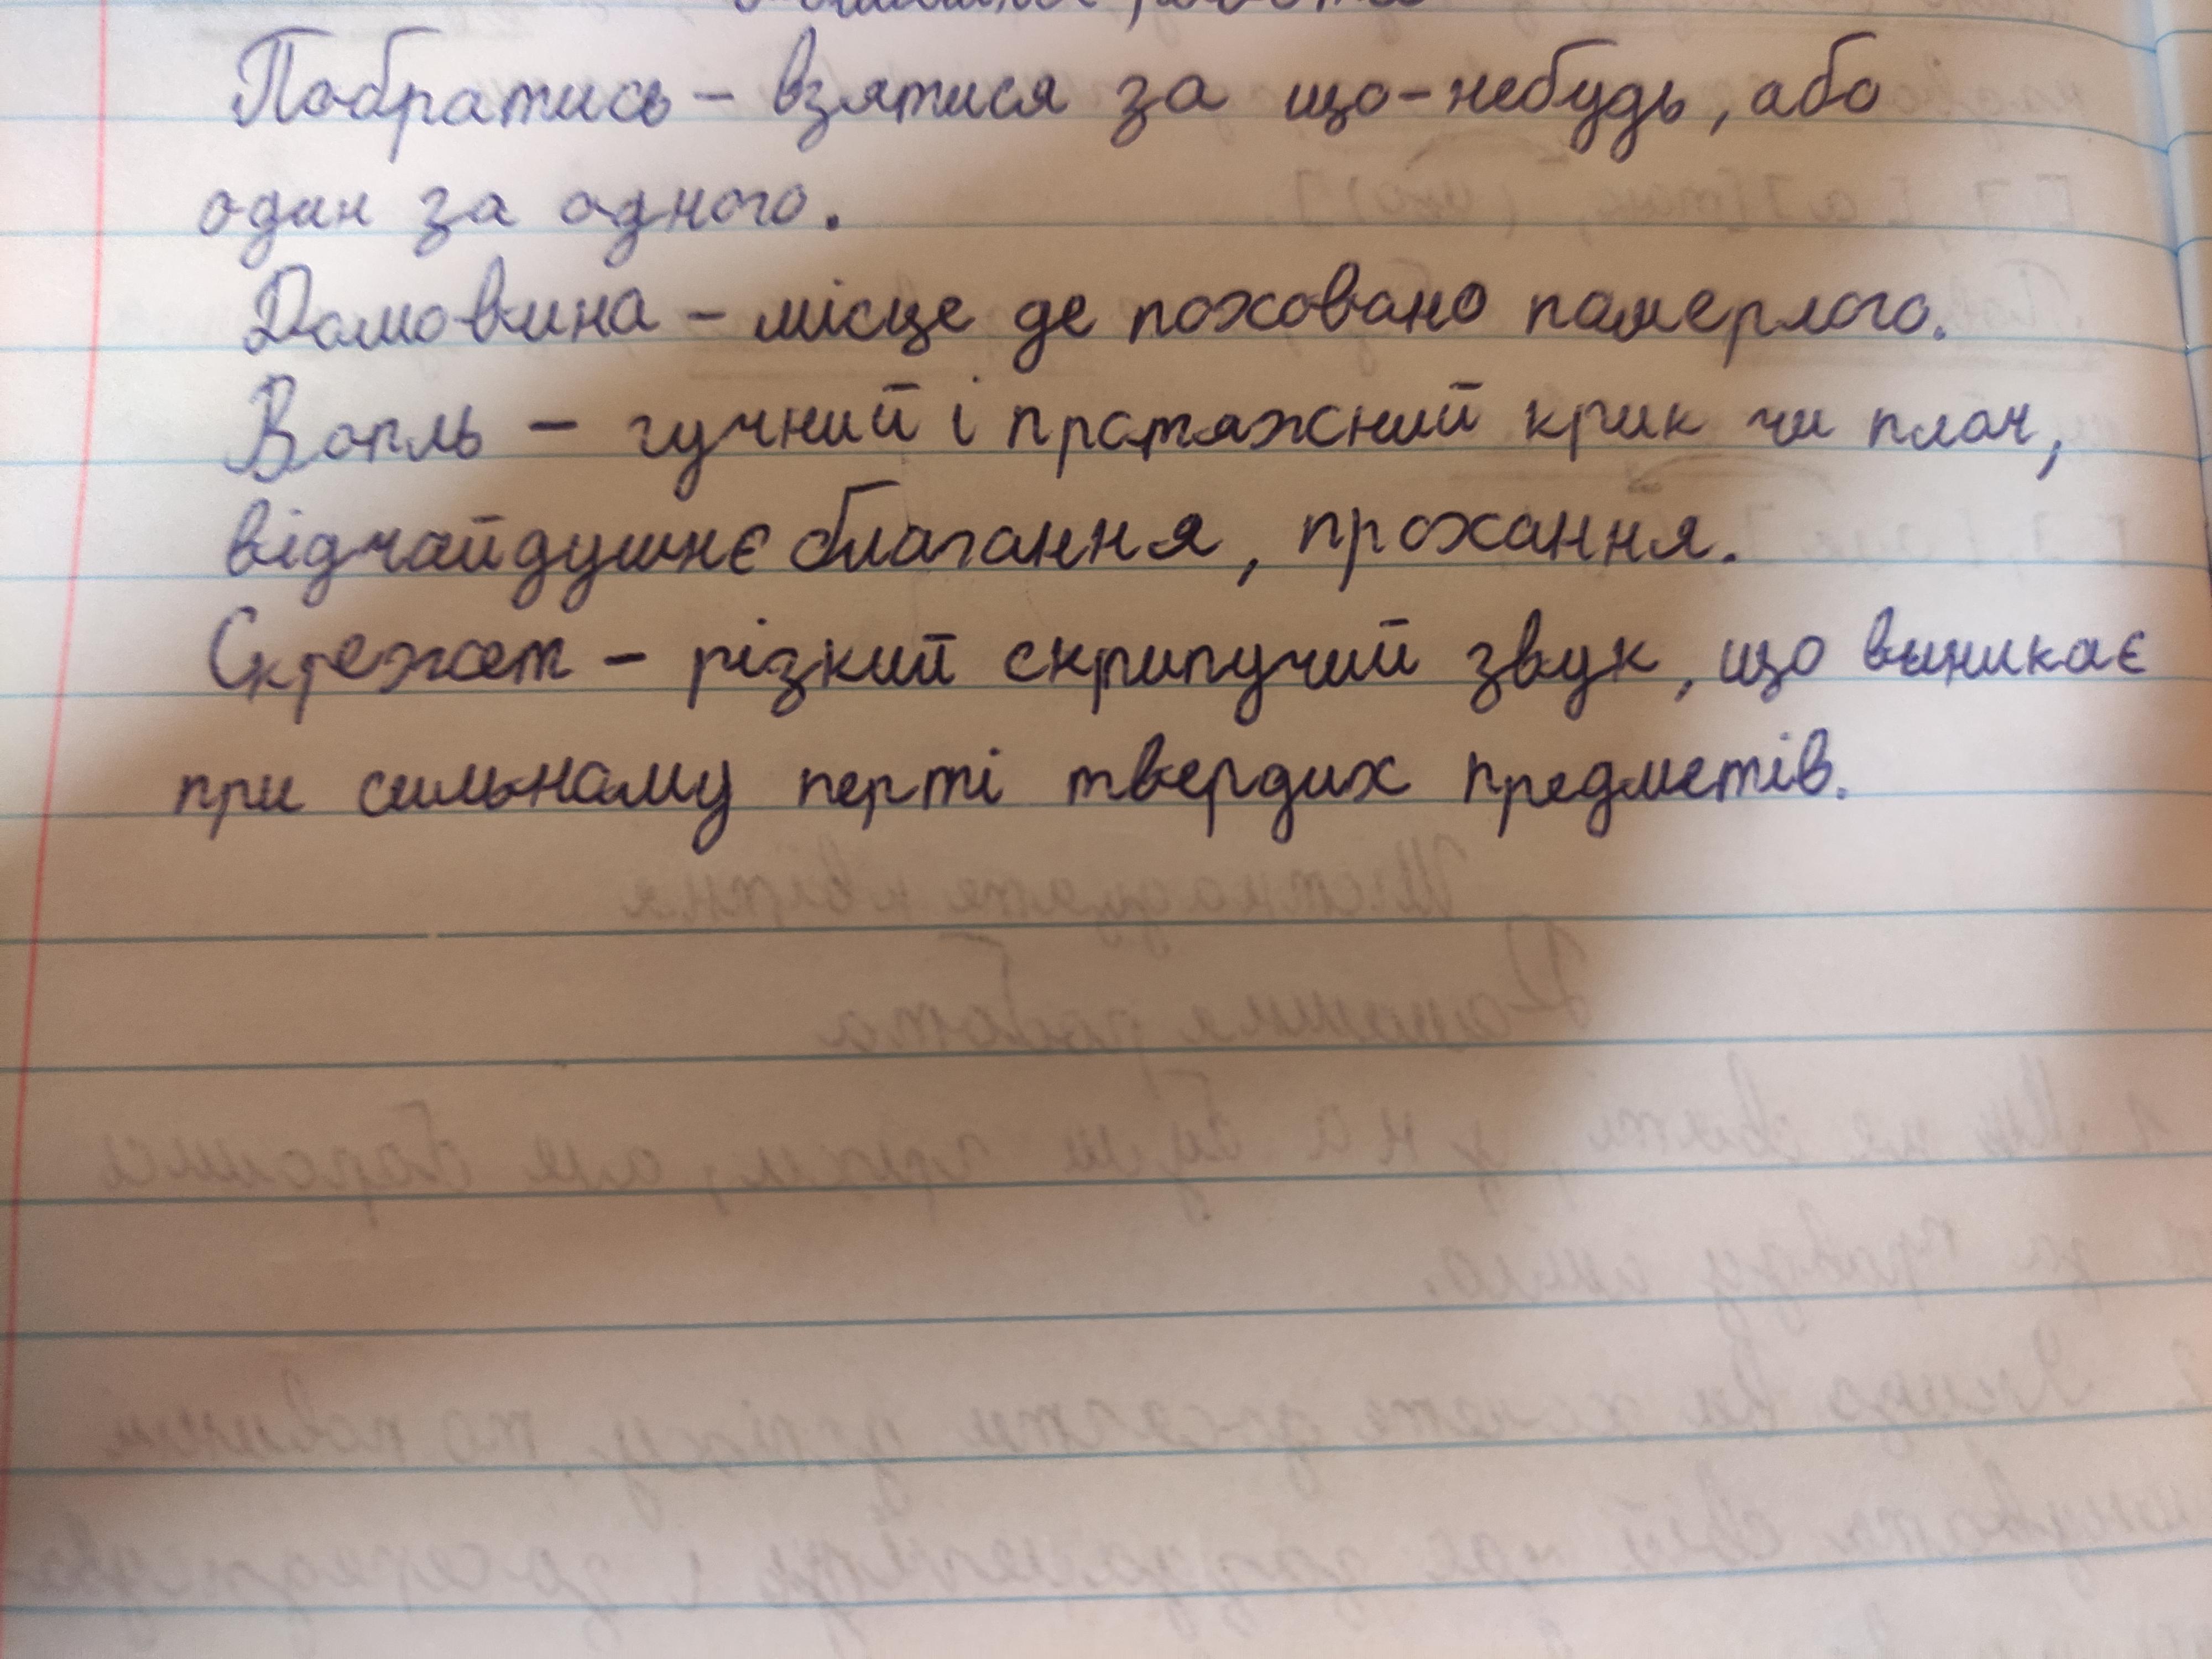 Побратись – взятися за що-небудь, або
один за одного.
Домовина – місце де поховано померлого.
Вопль – гучний і протяжний крик чи плач,
відчайдушнє благання, прохання.
Скрежет – різкий скрипучий звук, що виникає
при сильному перті твердих предметів.